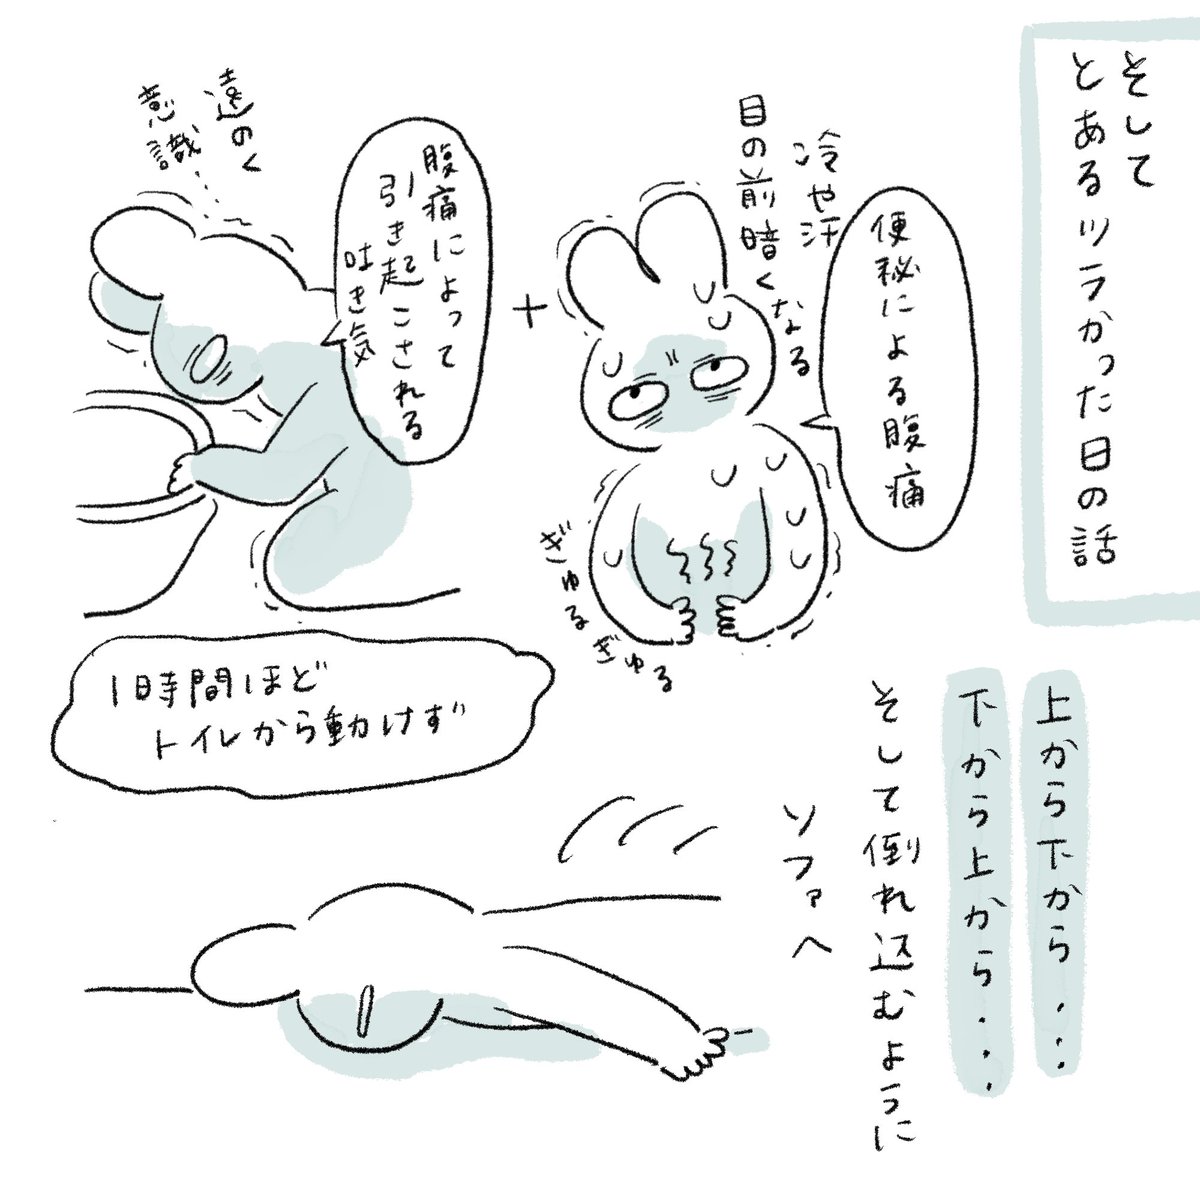 そして
とあるツラかった日の話
便秘による腹痛
冷や汗
目の前暗くなる
ぎゅるぎゅる
+
腹痛によって
引き起こされる
吐き気
遠のく
意識…
1時間ほど
トイレから動けず
上から下から...
下から上から...
そして倒れ込むように
ソファへ